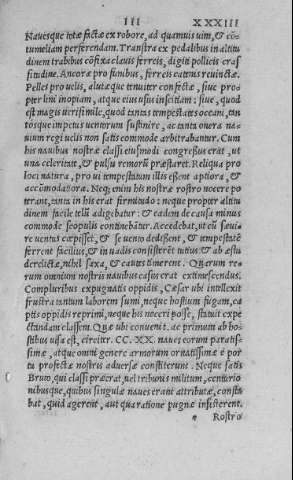 III XXXIII
Nauesque totæ factæ ex robore, ad quamuis uim, & cōtumeliam perferendam. Transtra ex pedalibus in altitu
dinem trabibus cōfixa clauis ferreis, digiti pollicis cras
situdine. Ancoræ pro funibus, ferreis catenis reuinctæ.
Pelles pro uelis, alutæque tenuiter confectæ, siue prop
ter lini inopiam, atque eius usus inscitiam: siue, quod
est magis uerisimile, quod tantas tempestates oceani, tan
tosque impetus uentorum sustinere, ac tanta onera na=
uium regi uelis non satis commode arbitrabantur. Cum
his nauibus nostræ classi eiusmodi congressus erat, ut
una celeritate, & pulsu remorū præstaret. Reliqua pro
loci natura, pro ui tempestatum illis essent aptiora, &
accōmodatiora. Neq; enim his nostræ rostro nocere po
terant, tanta in his erat firmitudo: neque propter altitu
dinem facile telū adigebatur: & eadem de causa minus
commode scopulis continebātur. Accedebat, ut cū sæui=
re uentus cœpisset, & se uento dedissent, & tempestatē
ferrent facilius, & in uadis consisterēt tutius: & ab æstu
derelictæ, nihil saxa, & cautes timerent. Quarum re=
rum omnium nostris nauibus casus erat extimescendus.
Compluribus expugnatis oppidis, Cæsar ubi intellexit
frustra tantum laborem sumi, neque hostium fugam, ca
ptis oppidis reprimi, neque his noceri posse, statuit expe
ctandam classem. Quæ ubi conuenit, ac primum ab ho=
stibus uisa est, circiter CC. XX. naues eorum paratis=
simæ, atque omni genere armorum ornatissimæ è por
tu profectæ nostris aduersæ constiterunt. Neque satis
Bruto, qui classi præerat, uel tribunis militum, centurio
nibusque, quibus singulæ naues erant attributæ, consta
bat, quid agerent, aut qua ratione pugnæ insisterent.
e Rostro